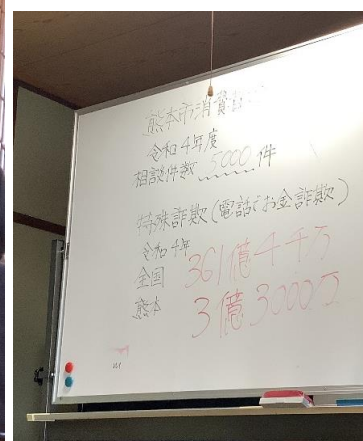 熊本市消費
令和4年度
相談件数 5000件
特殊詐欺(電話でお金詐欺)
令和4年
全国 361億4千万
熊本 3億3000万